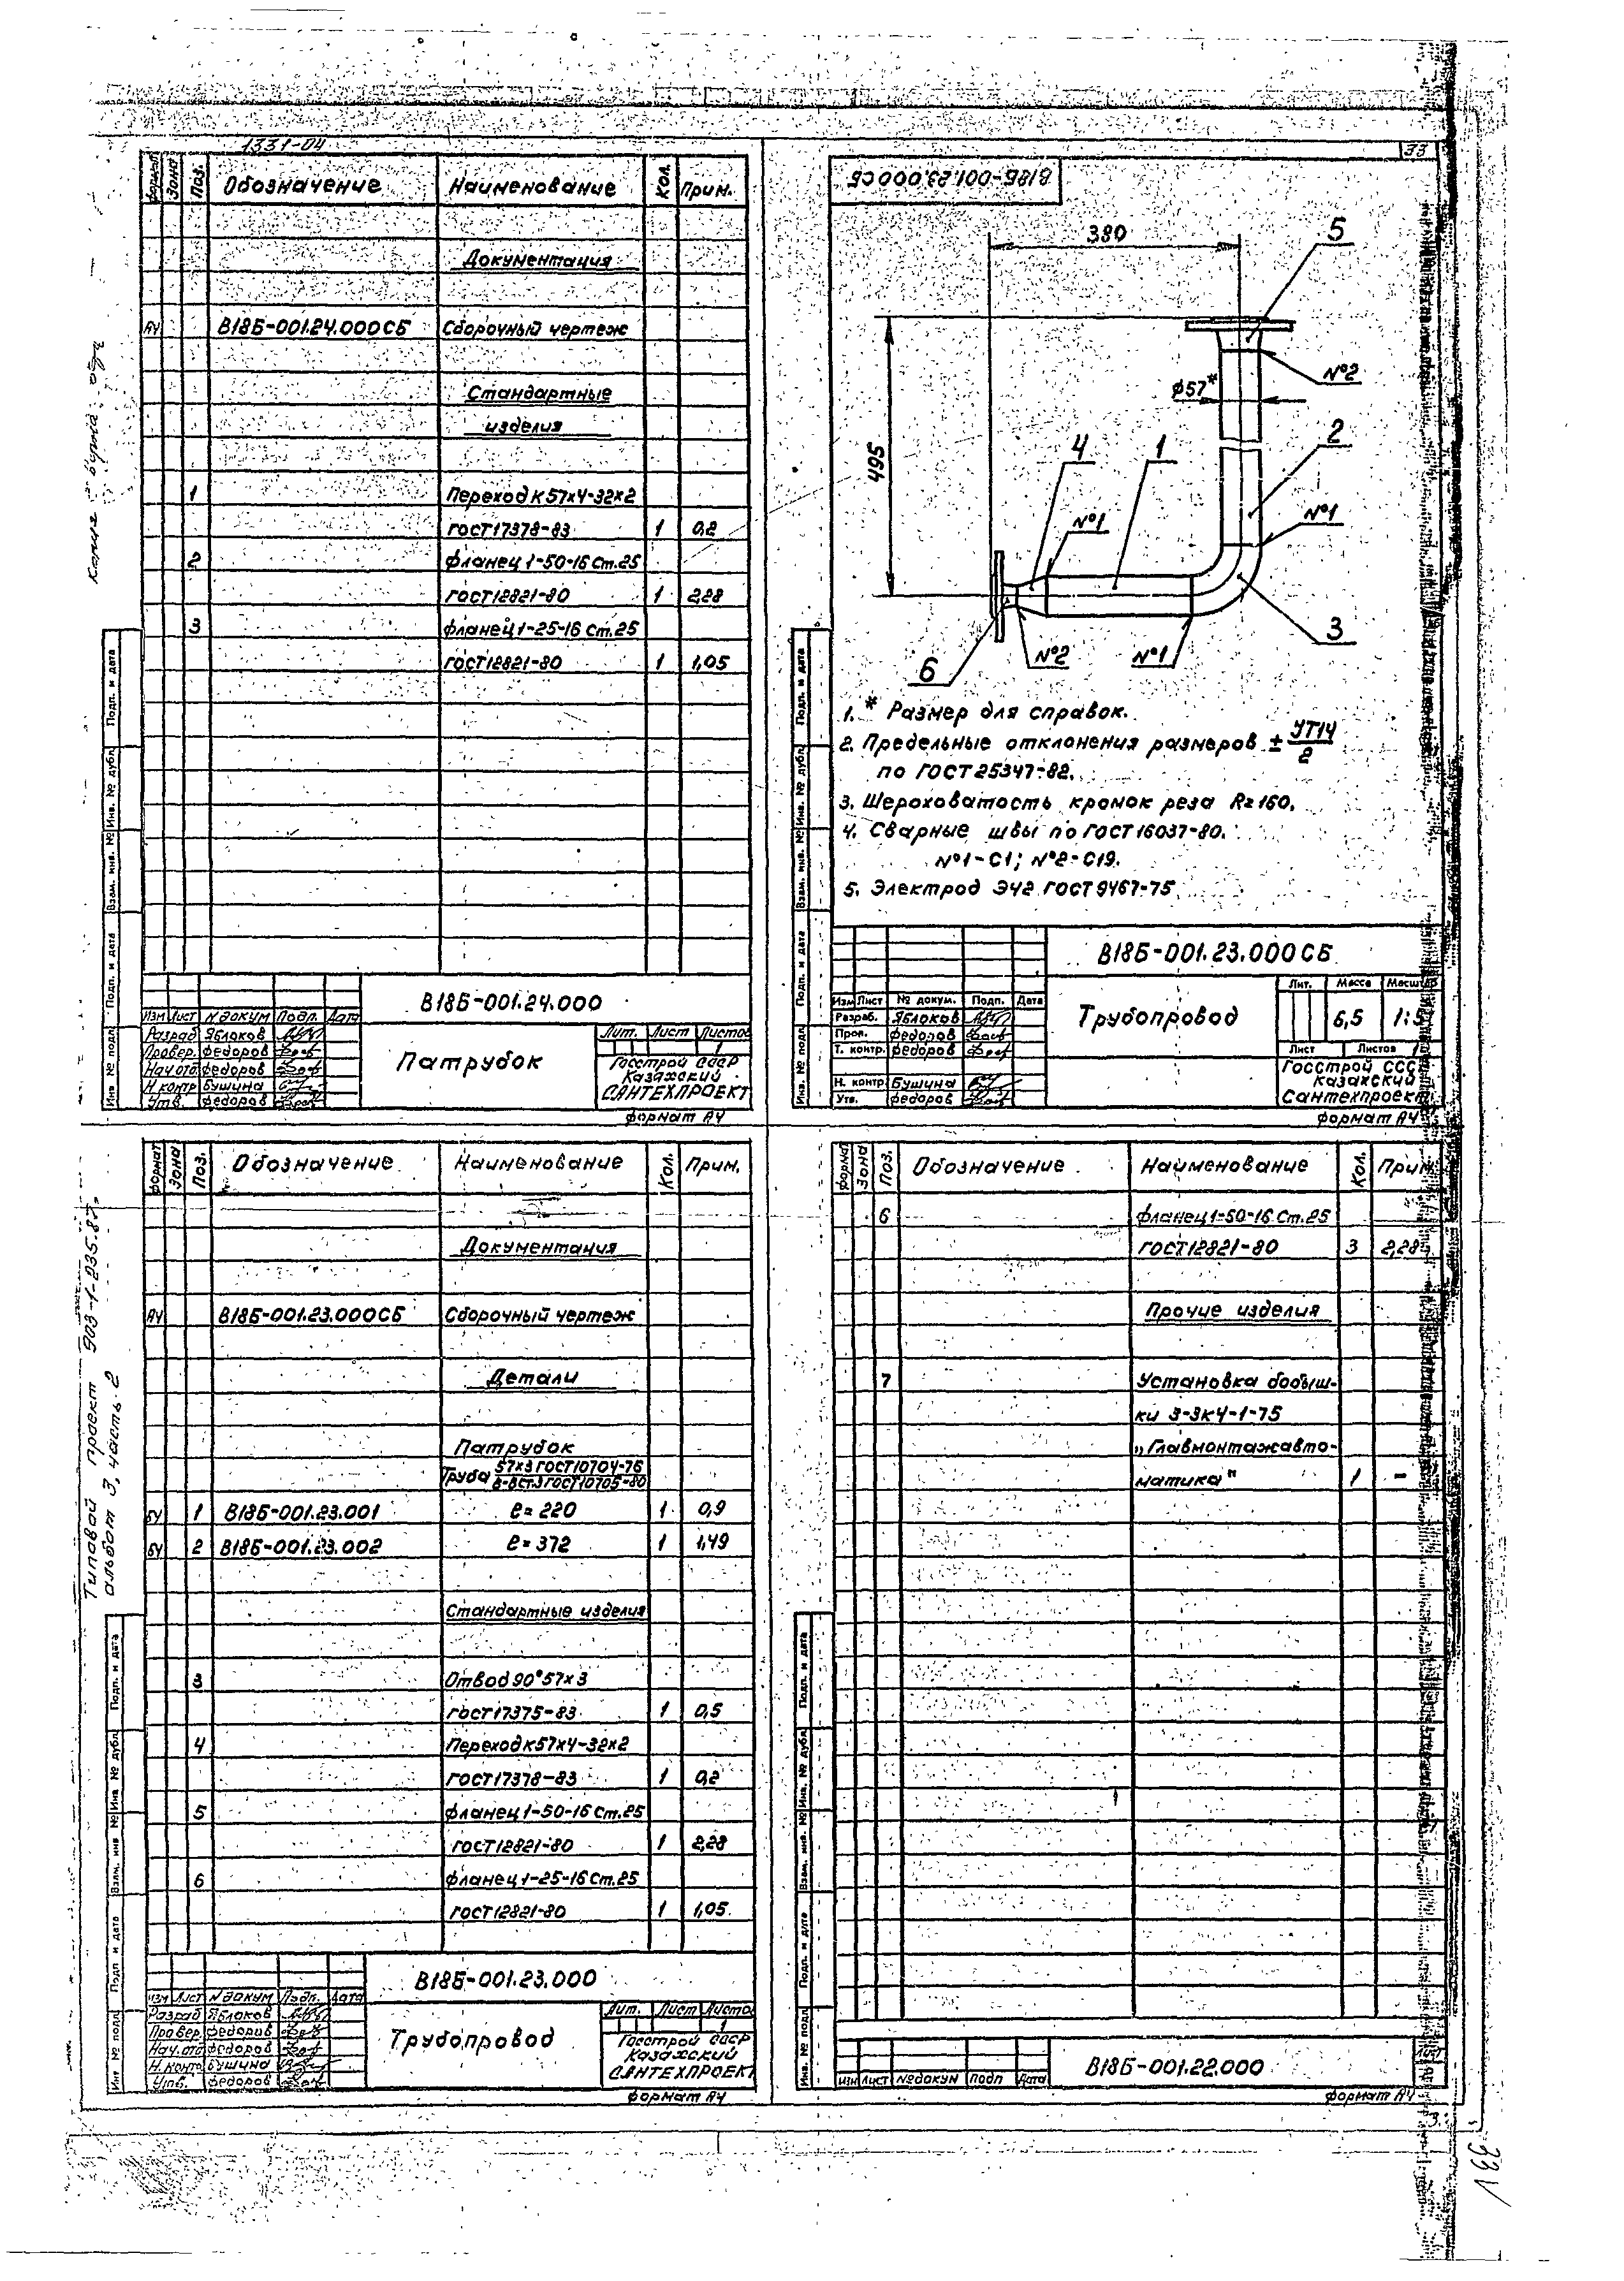 1331-04
33
Формат Зона Поз. Обозначение Наименование Кол. Прим.
Документация
А4 В18Б-001.24.000СБ Сборочный чертеж
Стандартные
изделия
1 Переход К57х4-32х2
ГОСТ 17378-83 1 0,2
2 Фланец 1-50-16 Ст.25
ГОСТ 12821-80 1 2,28
3 Фланец 1-25-16 Ст.25
ГОСТ 12821-80 1 1,05
Подп. и дата
Инв. № дубл.
Взам. инв. №
Подп. и дата
Инв № подл
В18Б-001.24.000
Изм Лист № докум Подп. Дата
Разраб Яблоков
Провер. Федоров
Нач.отд Федоров
Н.контр Бушина
Утв. Федоров
Патрубок
Лит. Лист Листов
1
Госстрой СССР
Казахский
САНТЕХПРОЕКТ
Формат А4
В18Б-001.23.000СБ
380
5
495
№2
ø57*
2
4
1
№1
№1
3
6
№2
№1
1. * Размер для справок.
2. Предельные отклонения размеров ± УТ14/2
по ГОСТ 25347-82.
3. Шероховатость кромок реза Rz 160.
4. Сварные швы по ГОСТ 16037-80.
№1-С1; №2-С19.
5. Электрод Э42 ГОСТ 9467-75
Подп. и дата
Инв. № дубл.
Взам. инв. №
Подп. и дата
Инв. № подл
В18Б-001.23.000СБ
Изм Лист № докум. Подп. Дата
Разраб. Яблоков
Пров. Федоров
Т. контр. Федоров
Н. контр. Бушина
Утв. Федоров
Трубопровод
Лит. Масса Масштаб
6,5 1:5
Лист Листов 1
Госстрой СССР
Казахский
Сантехпроект
Формат А4
Типовой проект 903-1-235.87
альбом 3, часть 2
Формат Зона Поз. Обозначение Наименование Кол. Прим.
Документация
А4 В18Б-001.23.000СБ Сборочный чертеж
Детали
Патрубок
Труба 57х3 ГОСТ 10704-76
В-ВСт.3 ГОСТ 10705-80
БЧ 1 В18Б-001.23.001 ℓ=220 1 0,9
БЧ 2 В18Б-001.23.002 ℓ=372 1 1,49
Стандартные изделия
3 Отвод 90° 57х3
ГОСТ 17375-83 1 0,5
4 Переход К57х4-32х2
ГОСТ 17378-83 1 0,2
5 Фланец 1-50-16 Ст.25
ГОСТ 12821-80 1 2,28
6 Фланец 1-25-16 Ст.25
ГОСТ 12821-80 1 1,05
Подп. и дата
Инв № дубл
Взам. инв №
Подп и дата
Инв № подл
В18Б-001.23.000
Изм Лист № докум Подп. Дата
Разраб Яблоков
Провер. Федоров
Нач.отд Федоров
Н.контр Бушина
Утв. Федоров
Трубопровод
Лит. Лист Листов
1
Госстрой СССР
Казахский
САНТЕХПРОЕКТ
Формат А4
Формат Зона Поз. Обозначение Наименование Кол. Прим.
6 Фланец 1-50-16 Ст.25
ГОСТ 12821-80 3 2,28
Прочие изделия
7 Установка бобыш-
ки 3-ЗК4-1-75
„Главмонтажавто-
матика" 1 –
Подп. и дата
Инв. № дубл
Взам. инв. №
Подп. и дата
Инв. № подл
Изм Лист № докум Подп Дата
В18Б-001.22.000
Лист
2
Формат А4